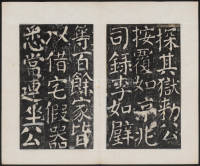 深其獄勅公
按覆如京兆
司錄李如璧
等百餘家皆
以借宅假器
悉當連坐公